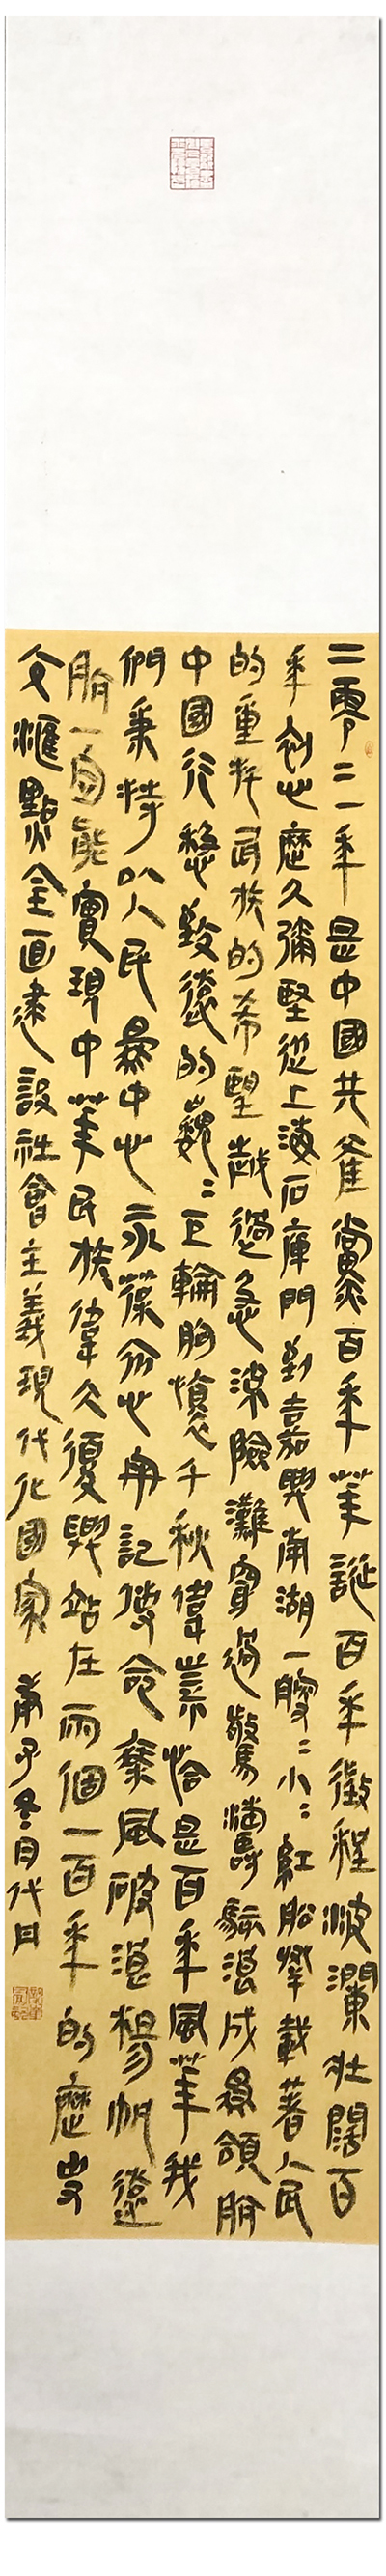 二零二一年是中國共產黨百年華誕百年征程波瀾壯闊百
年初心歷久彌堅從上海石庫門到嘉興南湖一艘小小紅船承載著人民
的重托民族的希望越過急流險灘穿過驚濤駭浪成為領航
中國行穩致遠的巍巍巨輪胸懷千秋偉業恰是百年風華我
們秉持以人民為中心永葆初心牢記使命乘風破浪揚帆遠
航一定能實現中華民族偉大復興站在兩個一百年的歷史
交匯點全面建設社會主義現代化國家 庚子冬月代月